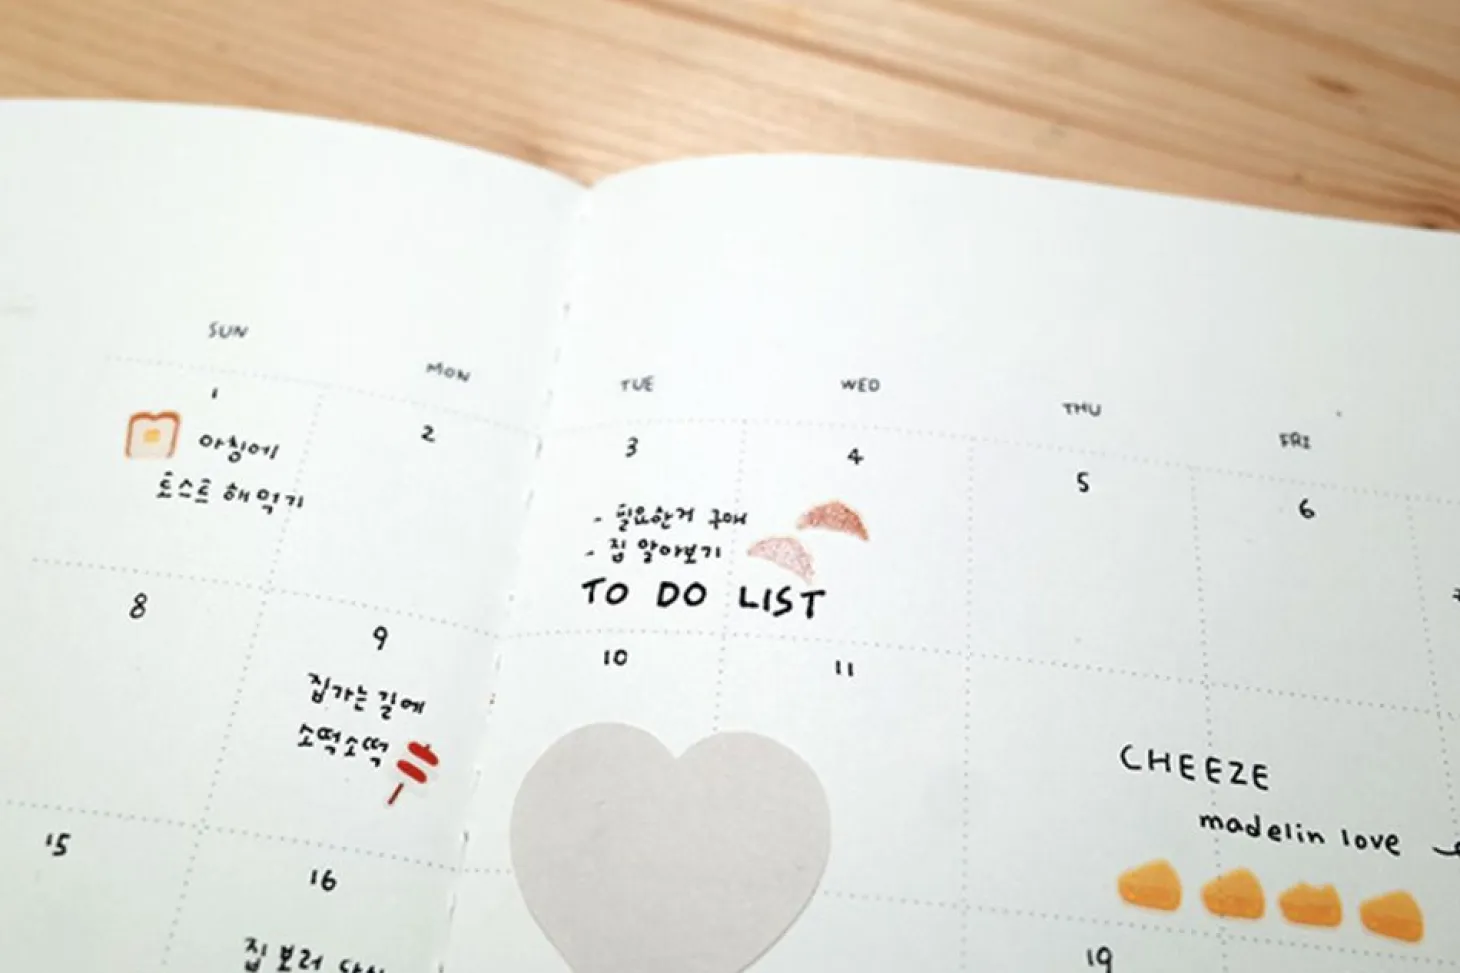 SUN
MON
TUE
WED
THU
FRI
1
아침에
토스트 해먹기
2
3
- 필요한거 구매
- 집 알아보기
TO DO LIST
4
5
6
8
9
집가는 길에
소떡소떡
10
11
CHEEZE
madelin love
15
16
집 보러
19